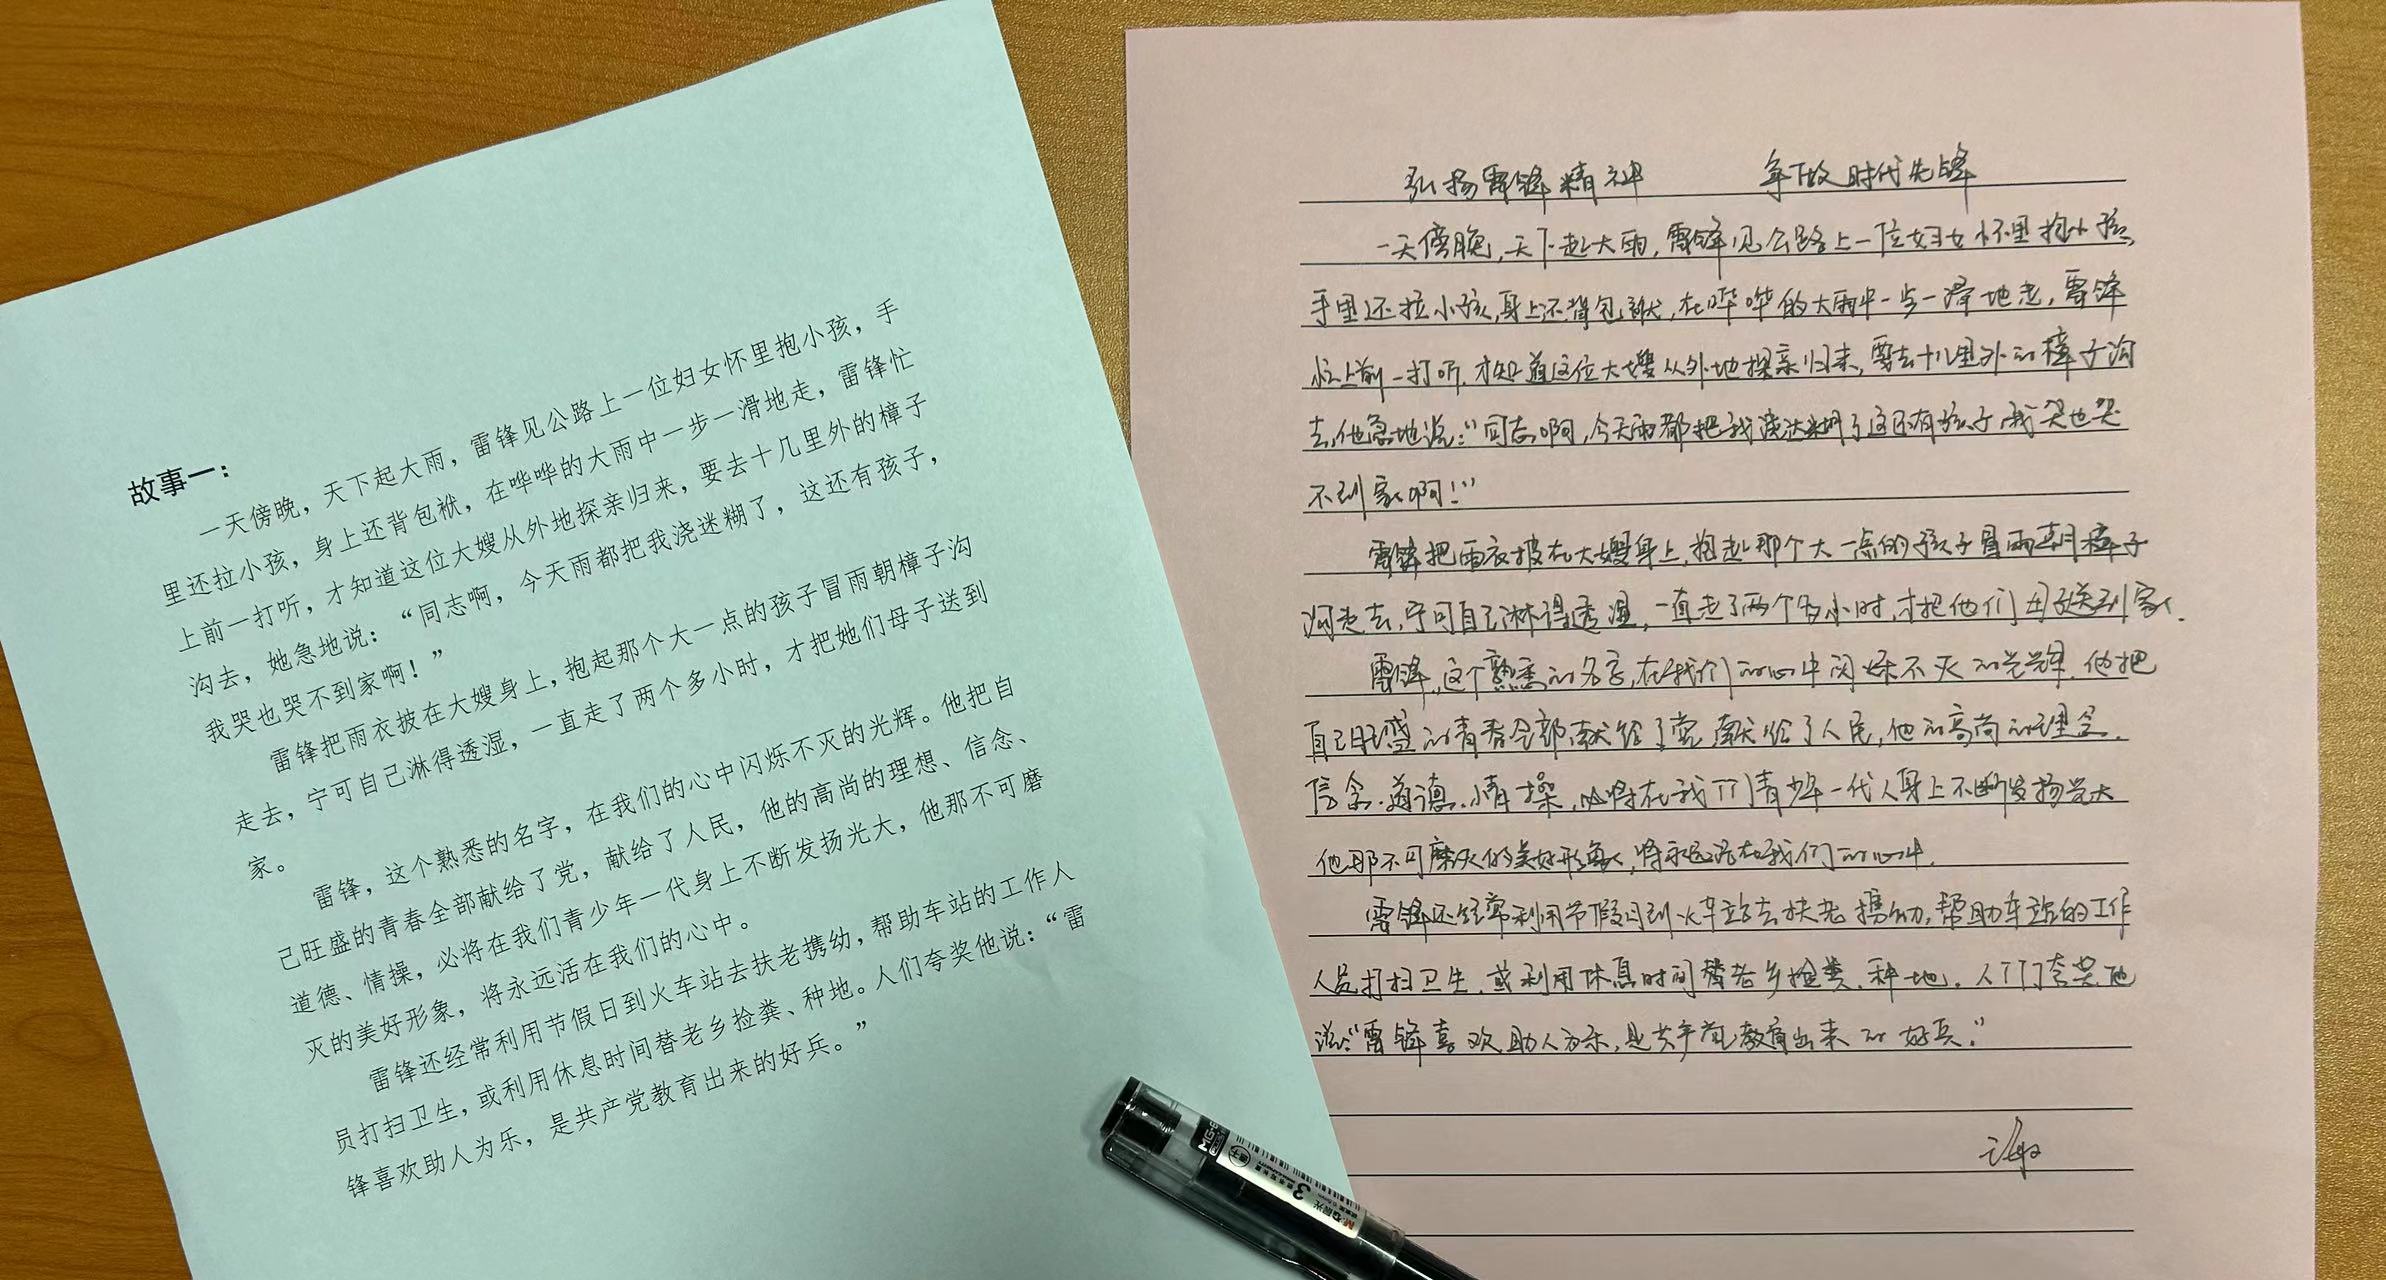 故事一：
一天傍晚，天下起大雨，雷锋见公路上一位妇女怀里抱小孩，手
里还拉小孩，身上还背包袱，在哗哗的大雨中一步一滑地走，雷锋忙
上前一打听，才知道这位大嫂从外地探亲归来，要去十几里外的樟子
沟去，她急地说：“同志啊，今天雨都把我浇迷糊了，这还有孩子，
我哭也哭不到家啊！”
雷锋把雨衣披在大嫂身上，抱起那个大一点的孩子冒雨朝樟子沟
走去，宁可自己淋得透湿，一直走了两个多小时，才把她们母子送到
家。
雷锋，这个熟悉的名字，在我们的心中闪烁不灭的光辉。他把自
己旺盛的青春全部献给了党，献给了人民，他的高尚的理想、信念、
道德、情操，必将在我们青少年一代身上不断发扬光大，他那不可磨
灭的美好形象，将永远活在我们的心中。
雷锋还经常利用节假日到火车站去扶老携幼，帮助车站的工作人
员打扫卫生，或利用休息时间替老乡捡粪、种地。人们夸奖他说：“雷
锋喜欢助人为乐，是共产党教育出来的好兵。”
弘扬雷锋精神 争做时代先锋
一天傍晚，天下起大雨，雷锋见公路上一位妇女怀里抱小孩，
手里还拉小孩，身上还背包袱，在哗哗的大雨中一步一滑地走，雷锋
忙上前一打听，才知道这位大嫂从外地探亲归来，要去十几里外的樟子沟
去，他急地说：“同志啊，今天雨都把我浇迷糊了这还有孩子，我哭也哭
不到家啊！”
雷锋把雨衣披在大嫂身上，抱起那个大一点的孩子冒雨朝樟子
沟走去，宁可自己淋得透湿，一直走了两个多小时，才把他们母子送到家。
雷锋，这个熟悉的名字，在我们的心中闪烁不灭的光辉。他把
自己旺盛的青春全部献给了党，献给了人民，他的高尚的理念、
信念、道德、情操，必将在我们青少年一代人身上不断发扬光大
他那不可磨灭的美好形象，将永远活在我们的心中。
雷锋还经常利用节假日到火车站去扶老携幼，帮助车站的工作
人员打扫卫生，或利用休息时间替老乡捡粪、种地。人们夸奖他
说：“雷锋喜欢助人为乐，是共产党教育出来的好兵。”
M&G
晨光
3